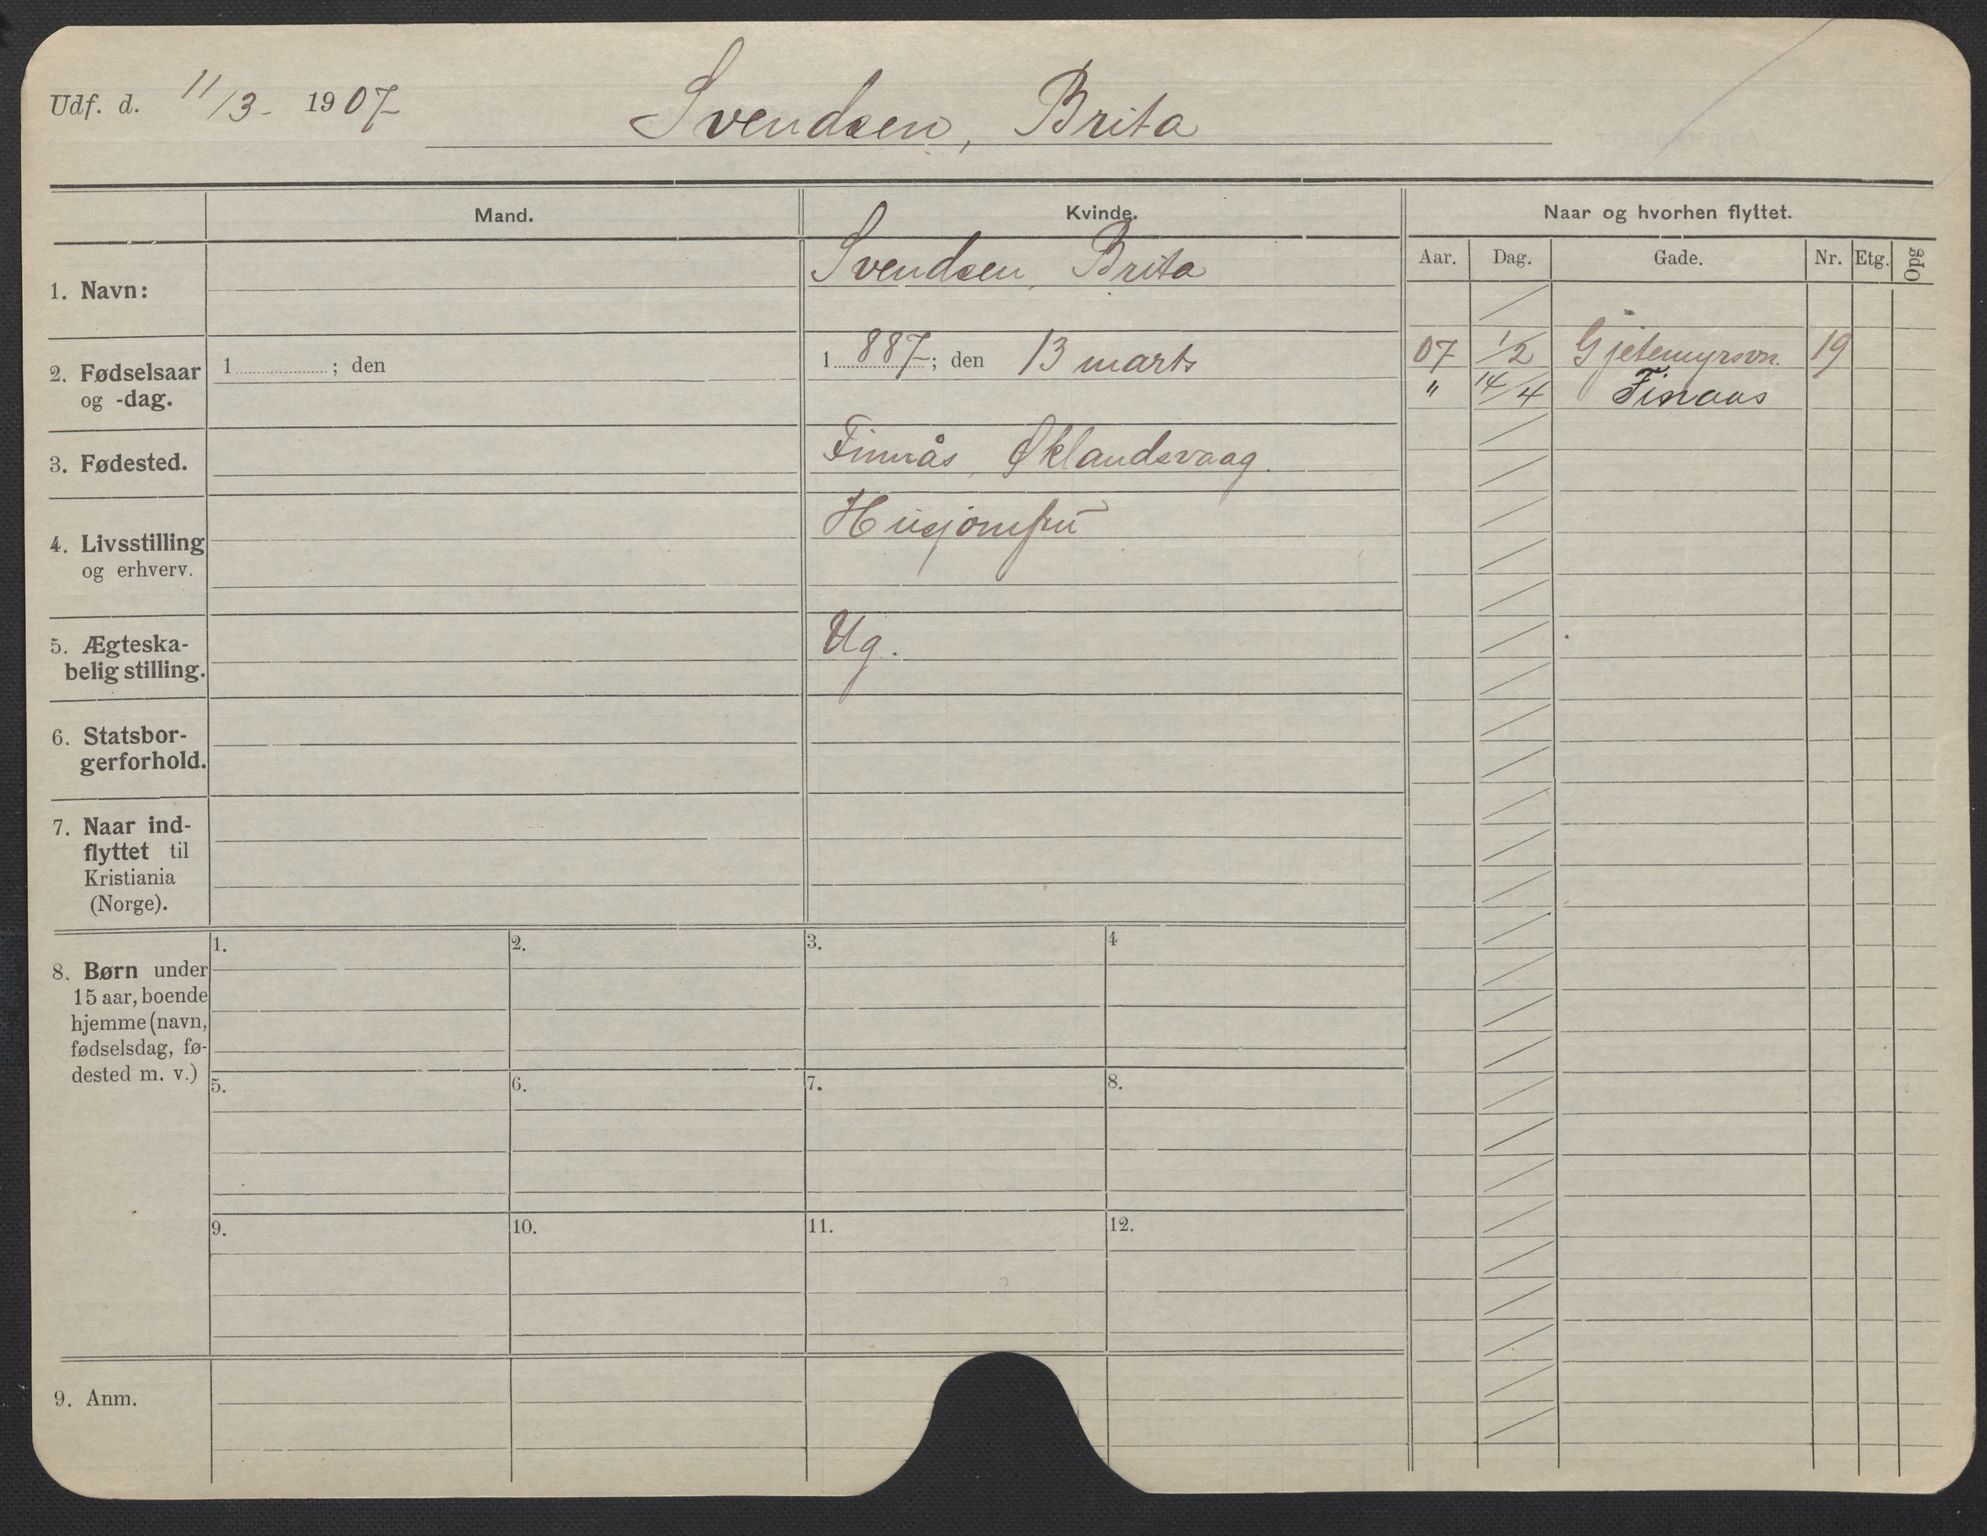 Udf. d. 11/3 - 1907
Svendsen, Brita
Mand.
Kvinde.
Naar og hvorhen flyttet.
Aar. Dag. Gade. Nr. Etg. Opg
1. Navn:
Svendsen, Brita
2. Fødselsaar
og -dag.
1 ; den
1 887 ; den 13 marts
07 1/2 Gjetemyrsvn. 19
" 14/4 Finaas
3. Fødested.
Finnås, Øklandsvaag.
4. Livsstilling
og erhverv.
Husjomfru
5. Ægteska-
belig stilling.
Ug.
6. Statsbor-
gerforhold.
7. Naar ind-
flyttet til
Kristiania
(Norge).
8. Børn under
15 aar, boende
hjemme (navn,
fødselsdag, fø-
dested m. v.)
1. 2. 3. 4
5. 6. 7. 8.
9. 10. 11. 12.
9. Anm.